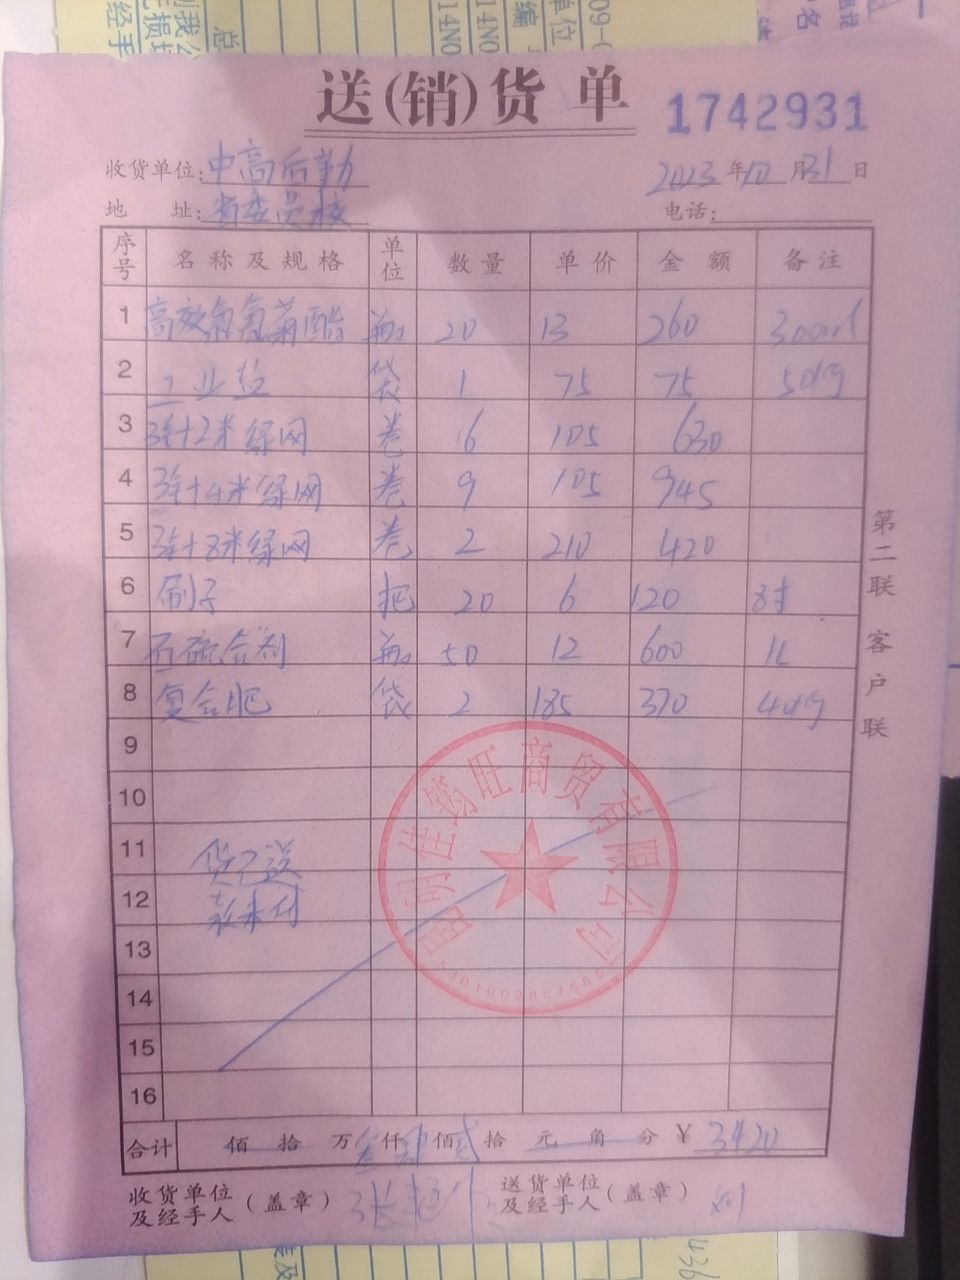 送(销)货单 1742931
收货单位:中高后勤 2023年10月31日
地 址:省委党校 电话:
序号 名称及规格 单位 数量 单价 金额 备注
1 高效氯氰菊酯 瓶 20 13 260 300ml
2 工业盐 袋 1 75 75 50kg
3 3针2米绿网 卷 6 105 630
4 3针4米绿网 卷 9 105 945
5 3针8米绿网 卷 2 210 420
6 刷子 把 20 6 120 8寸
7 石硫合剂 瓶 50 12 600 1L
8 复合肥 袋 2 185 370 40kg
9
10
11 货已送
12 款未付
13
14
15
16
合计 佰 拾 万叁仟肆佰贰拾 元 角 分 ¥ 3420
收货单位及经手人(盖章) 送货单位及经手人(盖章)
第二联 客户联
昆明佳筠旺商贸有限公司